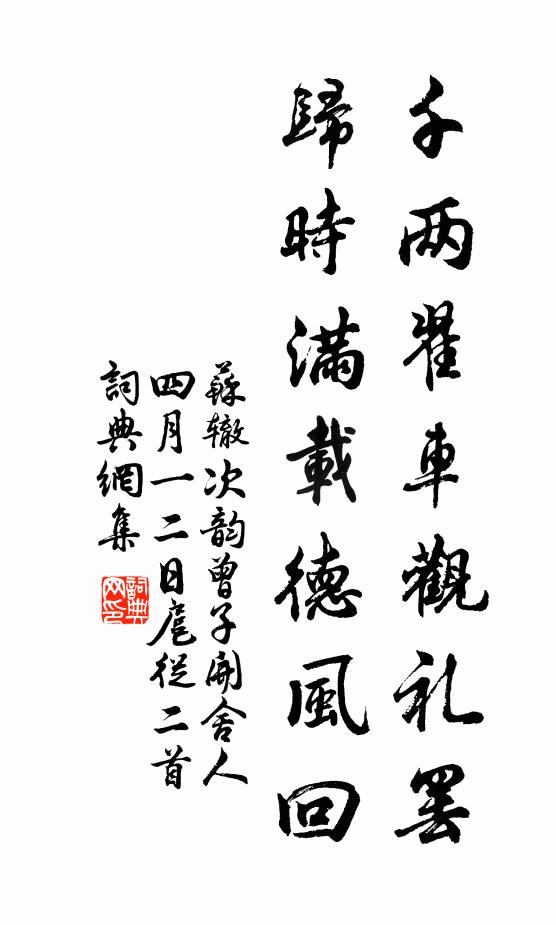 千两翟車觀礼罢
歸時滿載德風回
蘇辙次韵曾子開舍人
四月一二日扈從二首
詞典網集
詞典网印